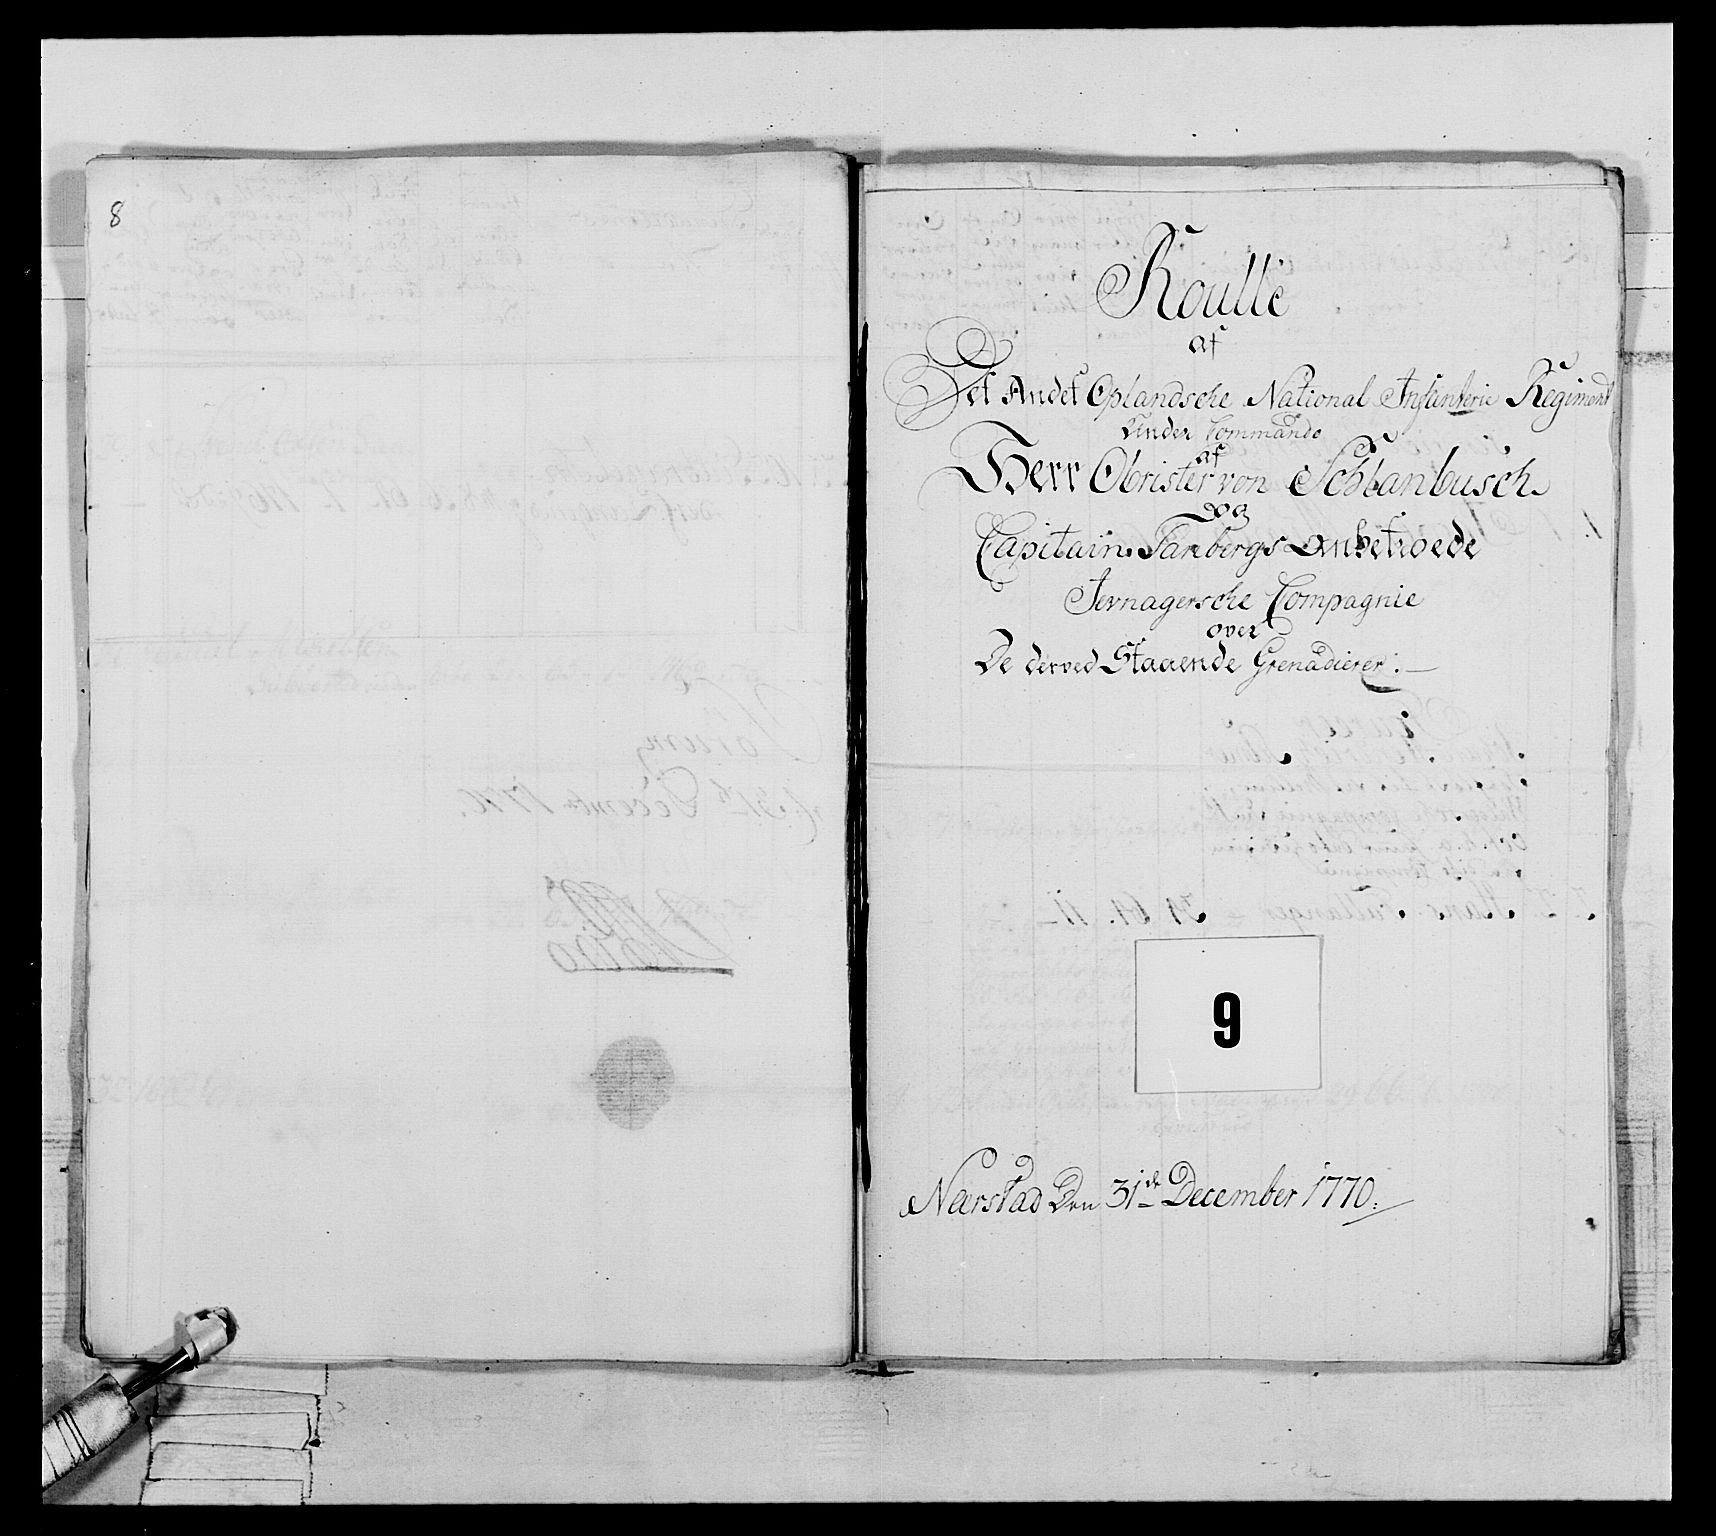 8
Roulle
af
Det Andet Oplandsche National Infanterie Regiment
Under Commando
af
Herr Obrister von Schlanbusch
og
Capitain Farbergs anbetroede
Jevnagersche Compagnie
over
De derved Staaende Grenadierer:
9
Nærstad Den 31de December 1770.